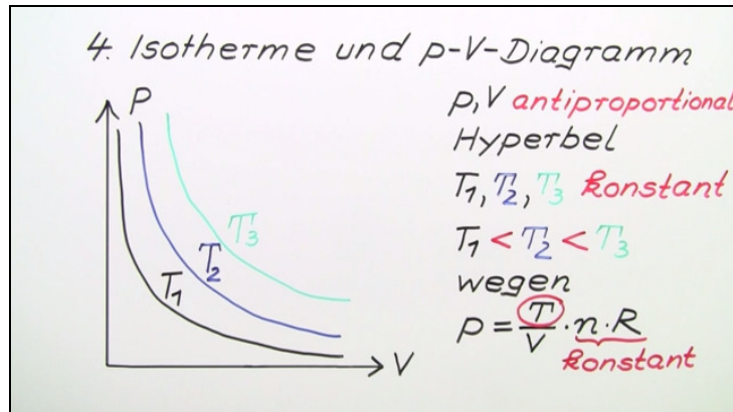 4. Isotherme und p-V-Diagramm
P
p,V antiproportional
Hyperbel
T₁, T₂, T₃ konstant
T₁ < T₂ < T₃
wegen
p = T/V · n · R
konstant
T₃
T₂
T₁
V